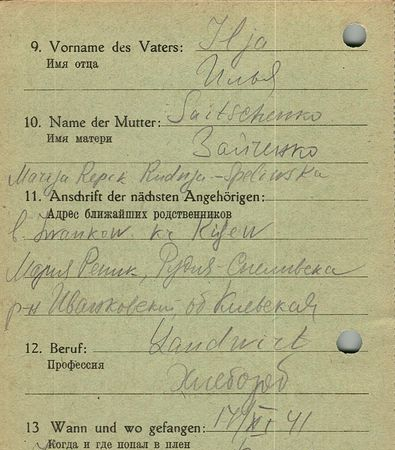 Ilja
9. Vorname des Vaters:
Имя отца
Илья
Saitschenko
10. Name der Mutter:
Имя матери
Зайченко
Marija Repek Rudnja-Speliwska
11. Anschrift der nächsten Angehörigen:
Адрес ближайших родственников
b. Iwankow. Kr Kijew
Мария Репик, Рудня-
р-н Иванковский об Киевская
12. Beruf: Landwirt
Профессия
Хлебороб
13 Wann und wo gefangen: 17/XI 41
Когда и где попал в плен